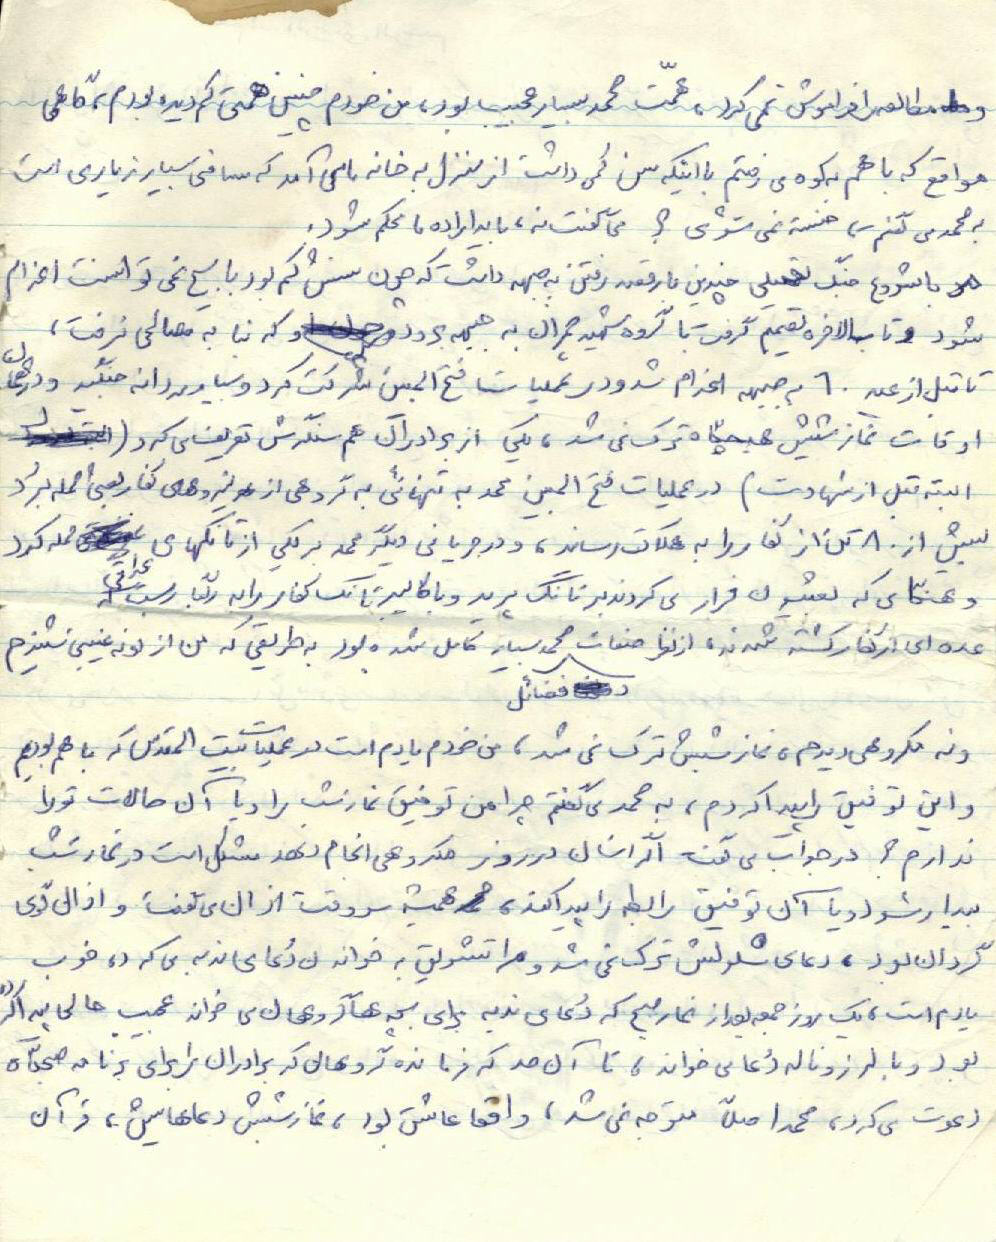 و مطالعه را فراموش نمی کرد، همّت محمد بسیار عجیب بود، من خودم چنین همتی کم دیده بودم، گاهی
مواقع که با هم به کوه می رفتیم با اینکه سن کمی داشت از منزل به خانه ما می آمد که مسافتی بسیار زیادی است
به محمد می گفتم، خسته نمی شوی؟ می گفت نه، باید اراده ما محکم شود.
با شروع جنگ تحمیلی چندین بار قصد رفتن به جبهه داشت که چون سنش کم بود با بسیج نمی توانست اعزام
شود و تا بالاخره تصمیم گرفت با گروه شهید چمران به جبهه برود و که بنا به مصالحی نرفت،
تا قبل از عید ٦٠ به جبهه اعزام شد و در عملیات فتح المبین شرکت کرد و بسیار مردانه جنگید و در همان
اوقات نماز شبش هیچگاه ترک نمی شد، یکی از برادران هم سنگرش تعریف می کرد (
البته قبل از شهادت) در عملیات فتح المبین محمد به تنهائی به گروهی از نیروهای کفار بعثی حمله برد
بیش از ٨٠ تن از کفار را به هلاکت رساند، و در جریانی دیگر محمد بر یکی از تانکهای عراقی حمله کرد
و هنگامی که بعثیون فرار می کردند بر تانک پرید و با کالیبر تانک کفار را به رگبار بست که
عده ای از کفار کشته شدند، از نظر صفات و فضائل محمد بسیار کامل شده بود به طریقی که من از او نه غیبتی شنیدم
و نه مکروهی دیدم، نماز شبش ترک نمی شد، من خودم یادم است در عملیات بیت المقدس که با هم بودیم
و این توفیق را پیدا کردم، به محمد می گفتم چرا من توفیق نماز شب را و یا آن حالات تو را
ندارم؟ در جواب می گفت اگر انسان در روز مکروهی انجام دهد مشکل است در نماز شب
بیدار شود و یا آن توفیق رابطه را پیدا کند، محمد همیشه سر وقت اذان می گفت و اذان گوی
گردان بود، دعای توسلش ترک نمی شد و مرا تشویق به خواندن دعای ندبه می کرد، خوب
یادم است، یک روز جمعه بعد از نماز صبح که دعای ندبه برای بچه های گروهان می خواند عجیب حالی پیدا کرده
بود و با لرز و ناله دعا می خواند، تا آن حد که فرمانده گروهان که برادران را برای برنامه صبحگاه
دعوت می کرد، محمد اصلاً متوجه نمی شد، واقعا عاشق بود، نماز شبش دعاهایش، قرآن